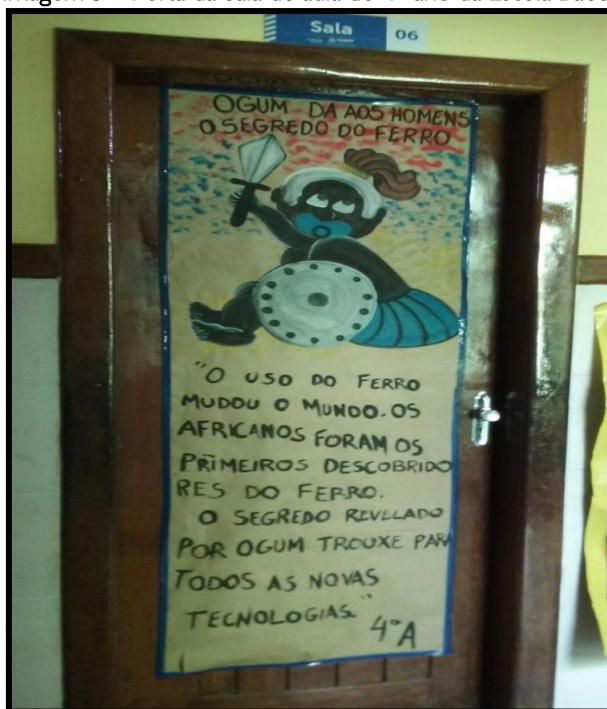 Sala
06
OGUM DA AOS HOMENS
O SEGREDO DO FERRO
"O USO DO FERRO
MUDOU O MUNDO. OS
AFRICANOS FORAM OS
PRIMEIROS DESCOBRIDO
RES DO FERRO.
O SEGREDO REVELADO
POR OGUM TROUXE PARA
TODOS AS NOVAS
TECNOLOGIAS."
4°A